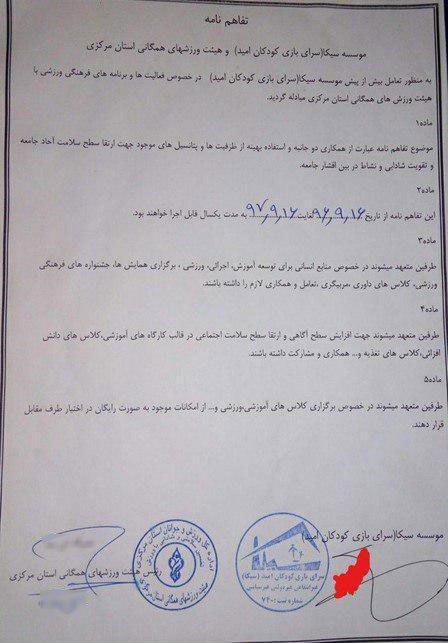 تفاهم نامه
موسسه سیکا(سرای بازی کودکان امید) و هیئت ورزشهای همگانی استان مرکزی
به منظور تعامل بیش از پیش موسسه سیکا(سرای بازی کودکان امید) در خصوص فعالیت ها و برنامه های فرهنگی ورزشی با
هیئت ورزش های همگانی استان مرکزی مبادله گردید.
ماده۱
موضوع تفاهم نامه عبارت از همکاری دو جانبه و استفاده بهینه از ظرفیت ها و پتانسیل های موجود جهت ارتقا سطح سلامت آحاد جامعه
و تقویت شادابی و نشاط در بین اقشار جامعه.
ماده۲
این تفاهم نامه از تاریخ ۹۶,۹,۱۶ لغایت ۹۷,۹,۱۶ به مدت یکسال قابل اجرا خواهند بود.
ماده۳
طرفین متعهد میشوند در خصوص منابع انسانی برای توسعه آموزش، اجرائی، ورزشی ، برگزاری همایش ها، جشنواره های فرهنگی
ورزشی، کلاس های داوری ،مربیگری ،تعامل و همکاری لازم را داشته باشند.
ماده۴
طرفین متعهد میشوند جهت افزایش سطح آگاهی و ارتقا سطح سلامت اجتماعی در قالب کارگاه های آموزشی،کلاس های دانش
افزائی،کلاس های تغذیه و... همکاری و مشارکت داشته باشند.
ماده۵
طرفین متعهد میشوند در خصوص برگزاری کلاس های آموزشی،ورزشی و... از امکانات موجود به صورت رایگان در اختیار طرف مقابل
قرار دهند.
موسسه سیکا(سرای بازی کودکان امید)
رئیس هیئت ورزشهای همگانی استان مرکزی
سرای بازی کودکان امید (سیکا)
غیرانتفاعی غیردولتی غیرسیاسی
شماره ثبت: ۷۴۰
اداره کل ورزش و جوانان استان مرکزی
هیئت ورزشهای همگانی استان مرکزی